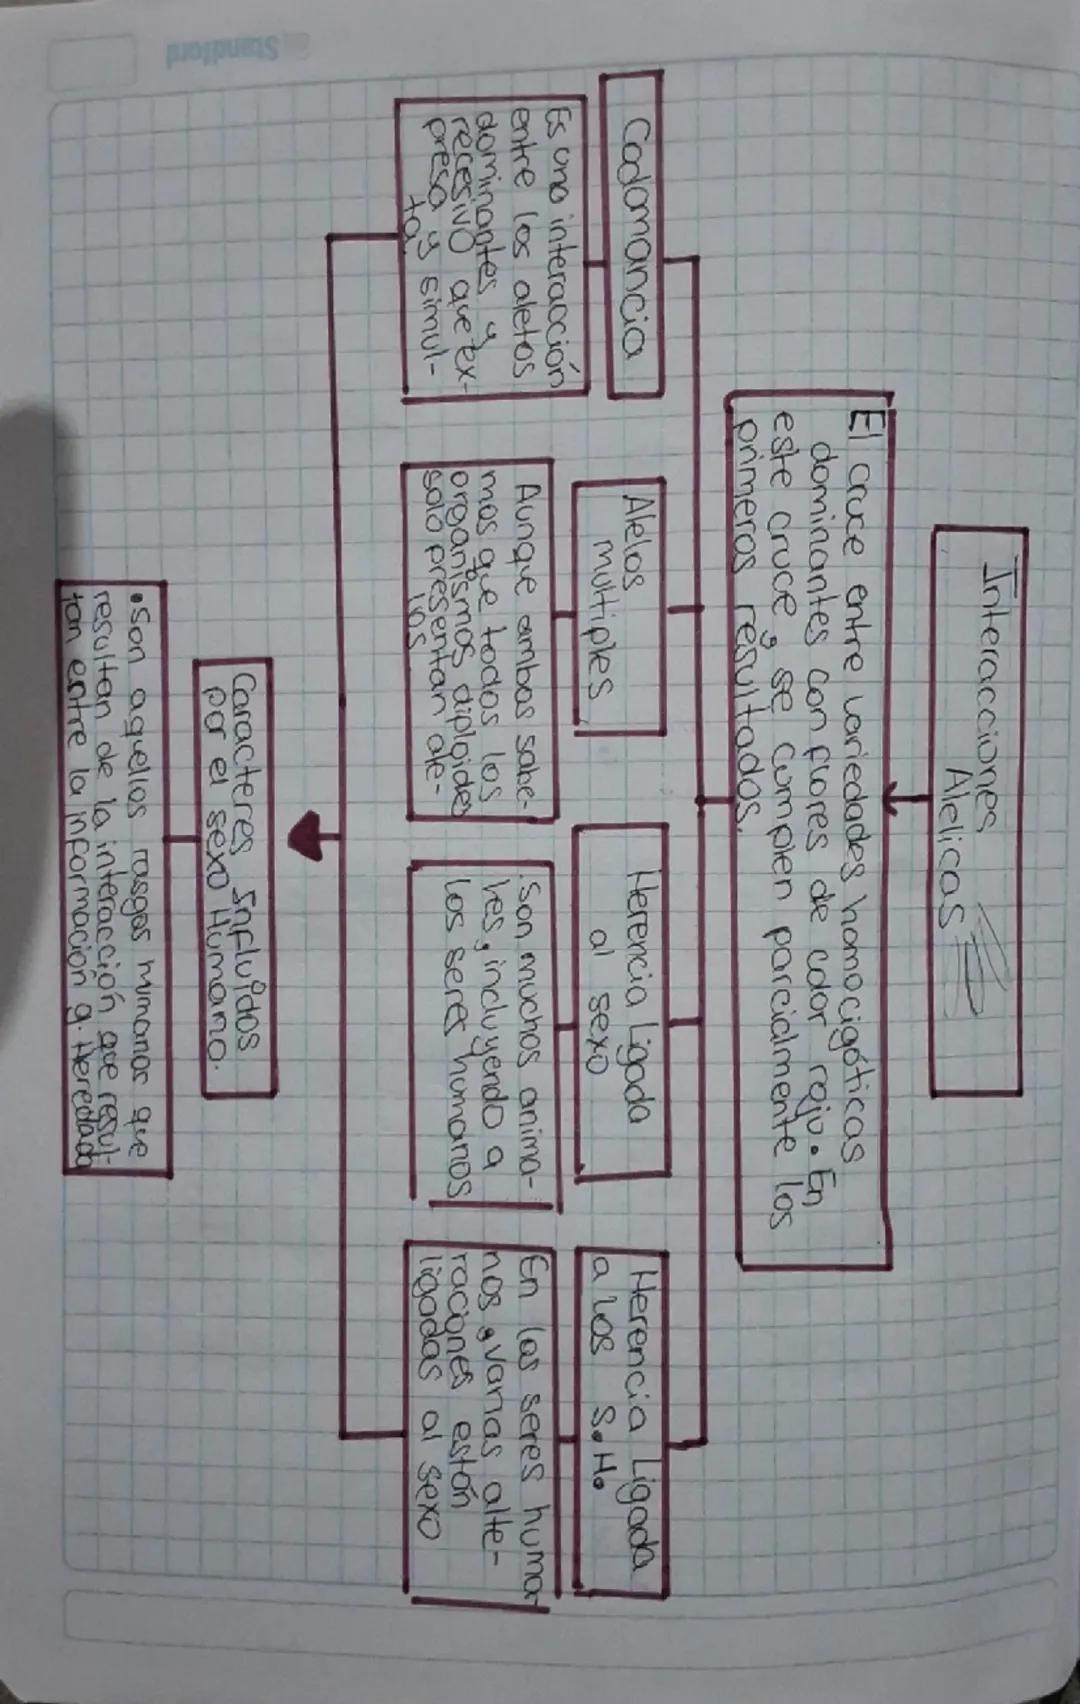 Standford
Interacciones
Alelicas
El cruce entre variedades homocigóticas
dominantes con flores de color rojo. En
este cruce, se cumplen parcialmente los
primeros resultados.
Codomancia
Es una interacción
entre los alelos
dominantes y
recesivo que ex-
presa y simul-
ta.
Alelos
multiples
Aunque ambos sabe-
mos que todos los
organismos diploides
solo presentan ale-
los
Herencia Ligada
al sexo
Son muchos anima-
les, incluyendo a
los seres humanos
Herencia Ligada
a los S.H.
En los seres huma-
nos, varias alte-
raciones están
ligadas al sexo
Caracteres Influidos
por el sexo Humano.
•Son aquellos rasgos mimanos que
resultan de la interacción que resul-
tan entre la información q. Heredada